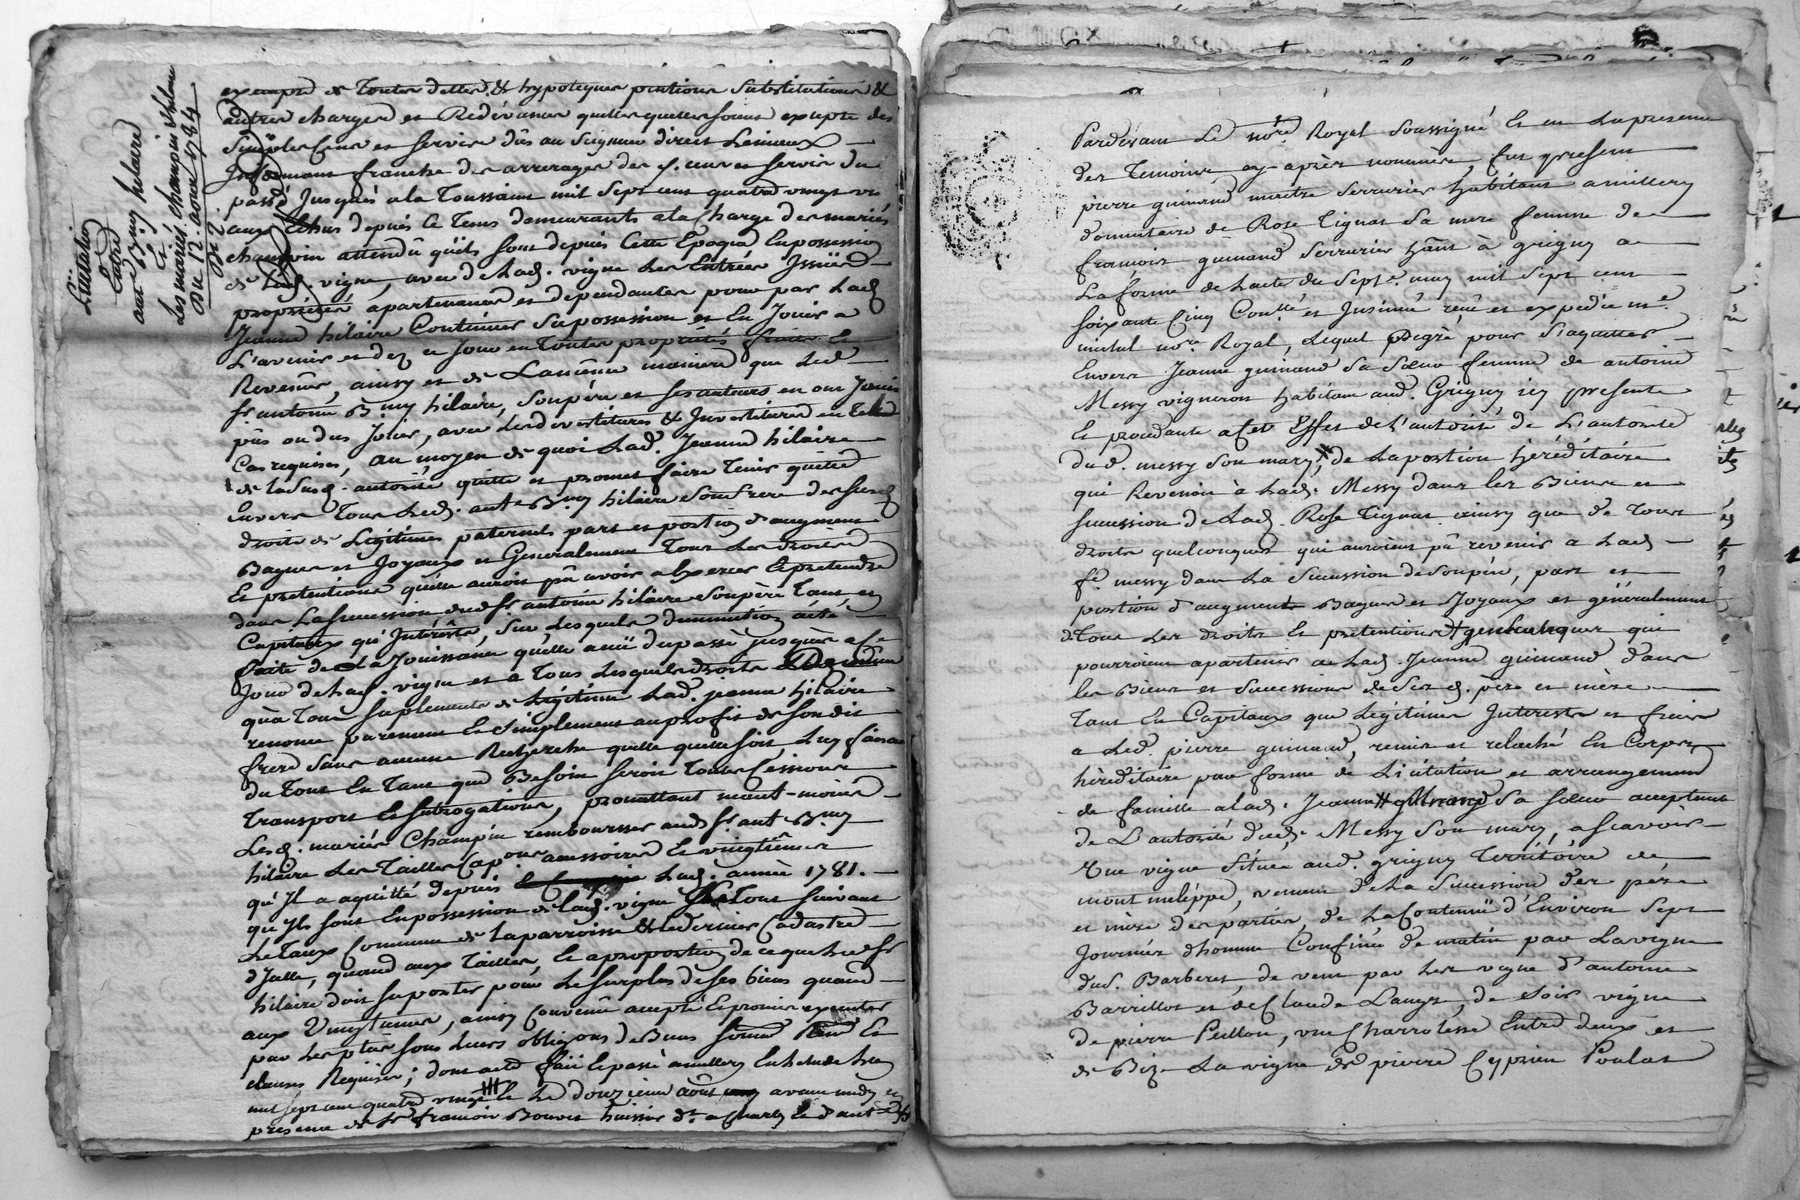 Licitation
Entre
aut B.my hilaire
Et
Les mariés champin hilaire
Du 12. aout 1784
exempte de Toutes dettes & hypoteques pentions Substitutions &
autres charges et Redévances quelles quelles soient excepté des
Simples Cens et Servis dûs au Seigneur direct
franche des arrerages des d. cens et servis du
passé Jusques a la Toussaint mil Sept cent quatre vingt un
ceux Echus depuis ce Tems demeurants a la charge des mariés
champin attendû qu'ils sont depuis Cette Epoque En possession
de lad. vigne, avec de Lad. vigne Les Entrées Issües
propriétés apartenances et dependantes pour par Lad
Jeanne hilaire Continuer Sa possession et En Jouir a
L'avenir et dez ce Jour en Toutes propriétés fruits &
Revenûs, ainsy et de La même maniere que Led
Sr antoine B.my hilaire, Son père et ses auteurs en ont Jouis
pûs ou dus Joüir, avec Les devestitures & Investitures en tel
Cas requises, au moyen de quoi Lad. Jeanne hilaire
de la Susd. autorité quitte et promet faire Tenir quitte
Envers Tous Led. ant B.my hilaire Son frere des susd
droits de Légitimes paternels part et portion d'augment
Bagues et Joyaux et Generalement Tous Les droits
Et pretentions qu'elle auroit pû avoir a Exercer & pretendre
dans La succession dud Sr antoine hilaire Son père Tant en
Capitaux qu'Intérêts, Sur Lesquels diminution a été
faite de La Jouissance qu'elle a eüe du passé jusques a Ce
Jour de Lad. vigne et a Tous Lesquels droits
qu'a Tous Suplements de Légitime Lad. jeanne hilaire
renonce purement & Simplement au profit de Son dit
frere Sans aucune Recherche quelle quelle soit, Luy faisant
du Tout En Tant que Besoin Seroit Toutes Cessions
Transport & Subrogations, promettant
Lesd. mariés Champin rembourser aud Sr ant B.my
hilaire Les Tailles Capon accessoires & vingtiemes
qu'Il a aquitté depuis Lad. année 1781.
qu'Ils sont En possession de Lad. vigne Le Tout Suivant
Le Taux Commun de La parroisse & Le dernier Cadastre
d'Icelle, quand aux Tailles, & a proportion de ce que Led Sr
hilaire doit Suporter pour Le Surplus de Ses biens quand
aux Vingtiemes, ainsy Convenû accepté & promis executer
par Les parties Sous Leurs obligons de Biens Soumis Renon &
clauses Requises; dont acte fait & passé a millery En Etude L'an
mil sept cent quatre vingt Le douzieme août avant midy en
presence de Sr francois Bouvet huissier
Pardevant Le nore Royal Soussigné Et en La presence
des Temoins cy après nommés, fut present
pierre guinand maitre Serrurier habitant a millery
donnataire de Rose Tignat Sa mere femme de
francois guinand Serrurier habitant à grigny a
La forme de L'acte du Sept may mil Sept cent
soixante Cinq Conllé et Insinué reçû et expedié me
michel nore Royal, Lequel de gré pour S'aquitter
Envers Jeanne guinand Sa Sœur femme de antoine
Messy vigneron habitant aud. Grigny icy presente
Et procedante a Cet Effet de L'autorité de L'autorité
dud. messy Son mary, de La portion héréditaire
qui Revenoit à Lad. Messy dans les Biens et
succession de Lad. Rose Tignat ainsy que de Tous
droits quelconques qui auroient pû revenir a Lad
fe messy dans La Succession de Son père, part et
portion d'augment Bagues et Joyaux et généralement
Tous Les droits Et pretentions quelconques qui
pourroient apartenir a Lad. Jeanne guinand dans
les Biens et Successions de Ses d. père et mère
Tant En Capitaux que Légitimes Interests et frais
a Led. pierre guinand, remis et relaché En Corps
héréditaire par forme de Licitation et arrangement
de famille a Lad. Jeanne guinand Sa Sœur acceptant
de L'autorité dud. Messy Son mary, a Scavoir
Une vigne Située aud. grigny Territoire de
mont meleppe, venant de La Succession des père
et mère des parties, de La Contenüe d'Environ Sept
Journées d'homme Confinée de matin par La vigne
du S. Barberet, de vent par Les vigne d'antoine
Barrillot et de Claude Laurt, de Soir vigne
de pierre Peillon, une Charroterre Entre deux et
de Bize La vigne de pierre Cyprien Poulat